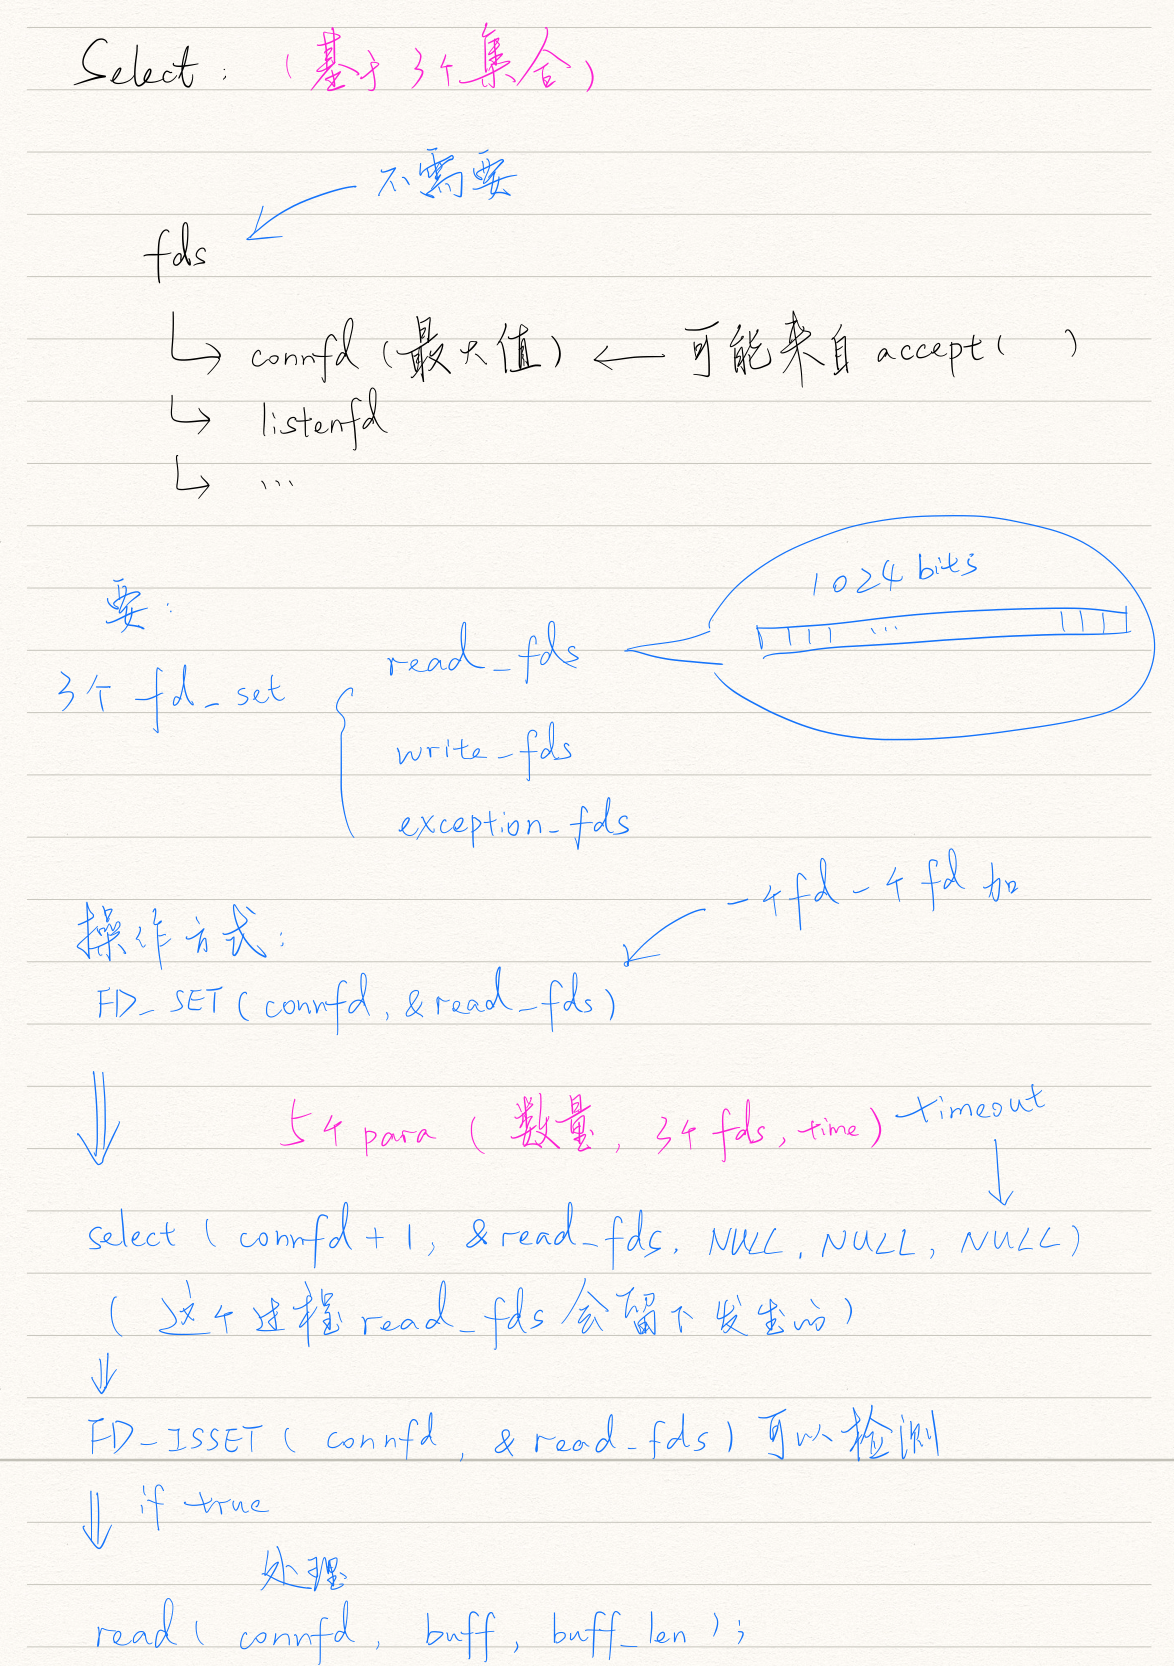 Select: (基于3个集合)
不需要
fds
connfd (最大值) ← 可能来自 accept( )
listenfd
...
要:
3个 fd_set
read_fds
1024 bits
...
write_fds
exception_fds
一个fd一个fd加
操作方式:
FD_SET(connfd, &read_fds)
5个para (数量, 3个fds, time) timeout
select (connfd+1, &read_fds, NULL, NULL, NULL)
(这个过程 read_fds 会留下发生的)
FD_ISSET (connfd, &read_fds) 可以检测
if true
处理
read (connfd, buff, buff_len);